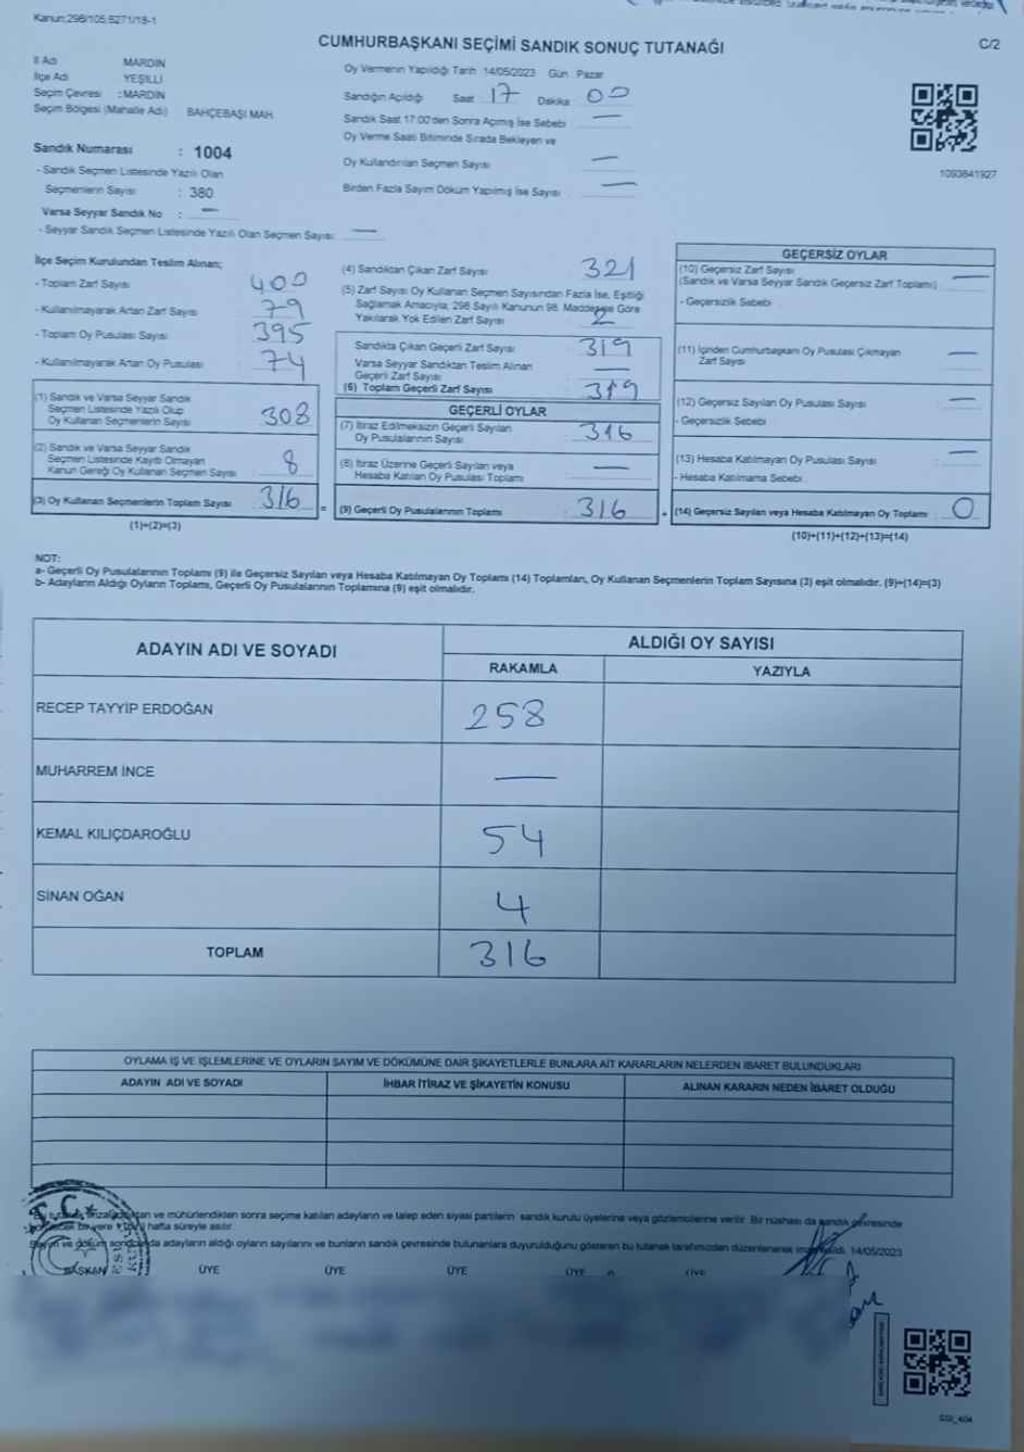 Kanun:298/105;5271/18-1
CUMHURBAŞKANI SEÇİMİ SANDIK SONUÇ TUTANAĞI
C/2
İl Adı MARDIN
İlçe Adı YEŞİLLİ
Seçim Çevresi :MARDIN
Seçim Bölgesi (Mahalle Adı) BAHÇEBAŞI MAH.
Sandık Numarası : 1004
- Sandık Seçmen Listesinde Yazılı Olan
Seçmenlerin Sayısı : 380
Varsa Seyyar Sandık No : —
- Seyyar Sandık Seçmen Listesinde Yazılı Olan Seçmen Sayısı: —
Oy Vermenin Yapıldığı Tarih 14/05/2023 Gün Pazar
Sandığın Açıldığı Saat 17 Dakika 00
Sandık Saat 17:00'den Sonra Açılmış İse Sebebi —
Oy Verme Saati Bitiminde Sırada Bekleyen ve
Oy Kullandırılan Seçmen Sayısı —
Birden Fazla Sayım Döküm Yapılmış İse Sayısı —
1093841927
İlçe Seçim Kurulundan Teslim Alınan;
- Toplam Zarf Sayısı 400
- Kullanılmayarak Artan Zarf Sayısı 79
- Toplam Oy Pusulası Sayısı 395
- Kullanılmayarak Artan Oy Pusulası 74
(1) Sandık ve Varsa Seyyar Sandık
Seçmen Listesinde Yazılı Olup
Oy Kullanan Seçmenlerin Sayısı 308
(2) Sandık ve Varsa Seyyar Sandık
Seçmen Listesinde Kayıtlı Olmayan
Kanun Gereği Oy Kullanan Seçmen Sayısı 8
(3) Oy Kullanan Seçmenlerin Toplam Sayısı 316 =
(1)+(2)=(3)
(4) Sandıktan Çıkan Zarf Sayısı 321
(5) Zarf Sayısı Oy Kullanan Seçmen Sayısından Fazla İse, Eşitliği
Sağlamak Amacıyla; 298 Sayılı Kanunun 98. Maddesine Göre
Yakılarak Yok Edilen Zarf Sayısı 2
Sandıkta Çıkan Geçerli Zarf Sayısı 319
Varsa Seyyar Sandıktan Teslim Alınan
Geçerli Zarf Sayısı —
(6) Toplam Geçerli Zarf Sayısı 319
GEÇERLİ OYLAR
(7) İtiraz Edilmeksizin Geçerli Sayılan
Oy Pusulalarının Sayısı 316
(8) İtiraz Üzerine Geçerli Sayılan veya
Hesaba Katılan Oy Pusulası Toplamı —
(9) Geçerli Oy Pusulalarının Toplamı 316 +
GEÇERSİZ OYLAR
(10) Geçersiz Zarf Sayısı —
(Sandık ve Varsa Seyyar Sandık Geçersiz Zarf Toplamı)
- Geçersizlik Sebebi
(11) İçinden Cumhurbaşkanı Oy Pusulası Çıkmayan
Zarf Sayısı —
(12) Geçersiz Sayılan Oy Pusulası Sayısı —
- Geçersizlik Sebebi
(13) Hesaba Katılmayan Oy Pusulası Sayısı —
- Hesaba Katılmama Sebebi
(14) Geçersiz Sayılan veya Hesaba Katılmayan Oy Toplamı 0
(10)+(11)+(12)+(13)=(14)
NOT:
a- Geçerli Oy Pusulalarının Toplamı (9) ile Geçersiz Sayılan veya Hesaba Katılmayan Oy Toplamı (14) Toplamları, Oy Kullanan Seçmenlerin Toplam Sayısına (3) eşit olmalıdır. (9)+(14)=(3)
b- Adayların Aldığı Oyların Toplamı, Geçerli Oy Pusulalarının Toplamına (9) eşit olmalıdır.
ADAYIN ADI VE SOYADI ALDIĞI OY SAYISI
RAKAMLA YAZIYLA
RECEP TAYYİP ERDOĞAN 258
MUHARREM İNCE —
KEMAL KILIÇDAROĞLU 54
SİNAN OĞAN 4
TOPLAM 316
OYLAMA İŞ VE İŞLEMLERİNE VE OYLARIN SAYIM VE DÖKÜMÜNE DAİR ŞİKAYETLERLE BUNLARA AİT KARARLARIN NELERDEN İBARET BULUNDUKLARI
ADAYIN ADI VE SOYADI İHBAR İTİRAZ VE ŞİKAYETİN KONUSU ALINAN KARARIN NEDEN İBARET OLDUĞU
T.C.
ve mühürlendikten sonra seçime katılan adayların ve talep eden siyasi partilerin sandık kurulu üyelerine veya gözlemcilerine verilir. Bir nüshası da sandık çevresinde
hafta süreyle asılır.
Sayım ve döküm sonucunda adayların aldığı oyların sayılarını ve bunların sandık çevresinde bulunanlara duyurulduğunu gösteren bu tutanak tarafımızdan düzenlenerek imzalandı. 14/05/2023
BAŞKAN ÜYE ÜYE ÜYE ÜYE ÜYE